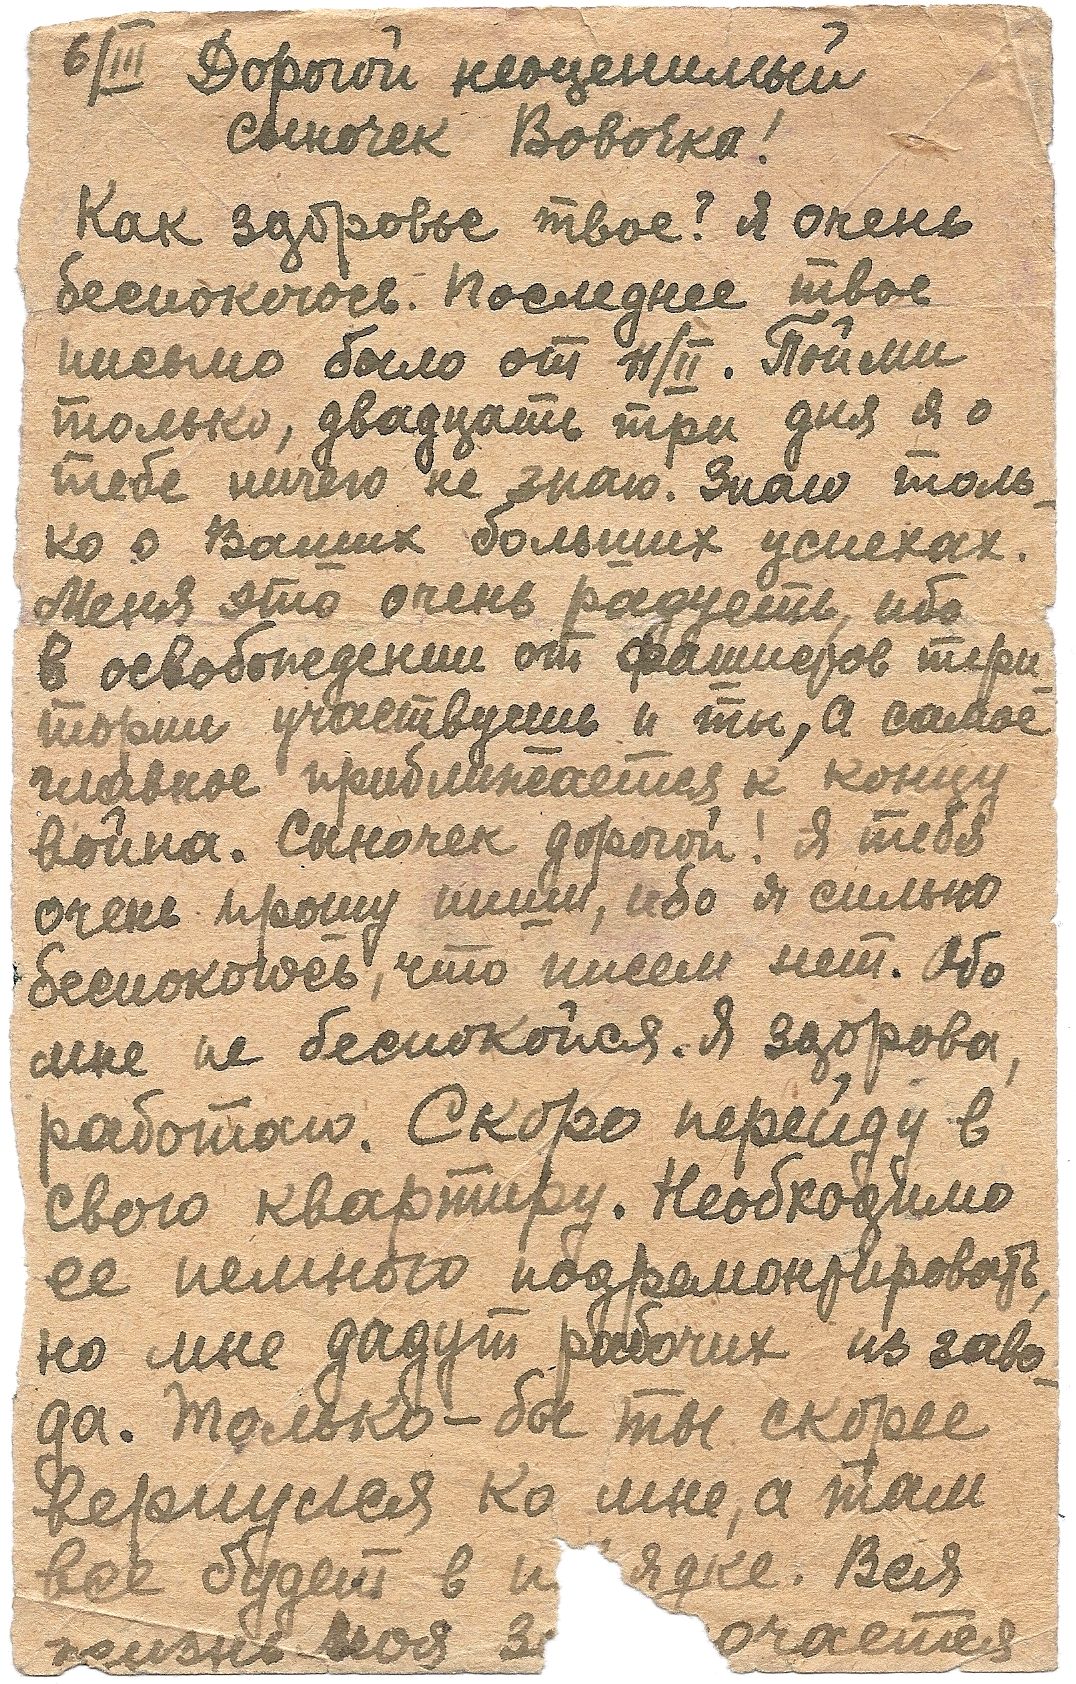 6/III Дорогой неоценимый
сыночек Вовочка!
Как здоровье твое? Я очень
беспокоюсь. Последнее твое
письмо было от 11/II. Пойми
только, двадцать три дня я о
тебе ничего не знаю. Знаю толь-
ко о Ваших больших успехах.
Меня это очень радует, ибо
в освобождении от фашистов терри
тории участвуешь и ты, а самое
главное приближается к концу
война. Сыночек дорогой! Я тебя
очень прошу пиши, ибо я сильно
беспокоюсь, что писем нет. Обо
мне не беспокойся. Я здорова,
работаю. Скоро перейду в
свою квартиру. Необходимо
ее немного подремонтировать,
но мне дадут рабочих из заво-
да. Только-бы ты скорее
вернулся ко мне, а там
все будет в п ядке. Вся
жизнь моя з очается